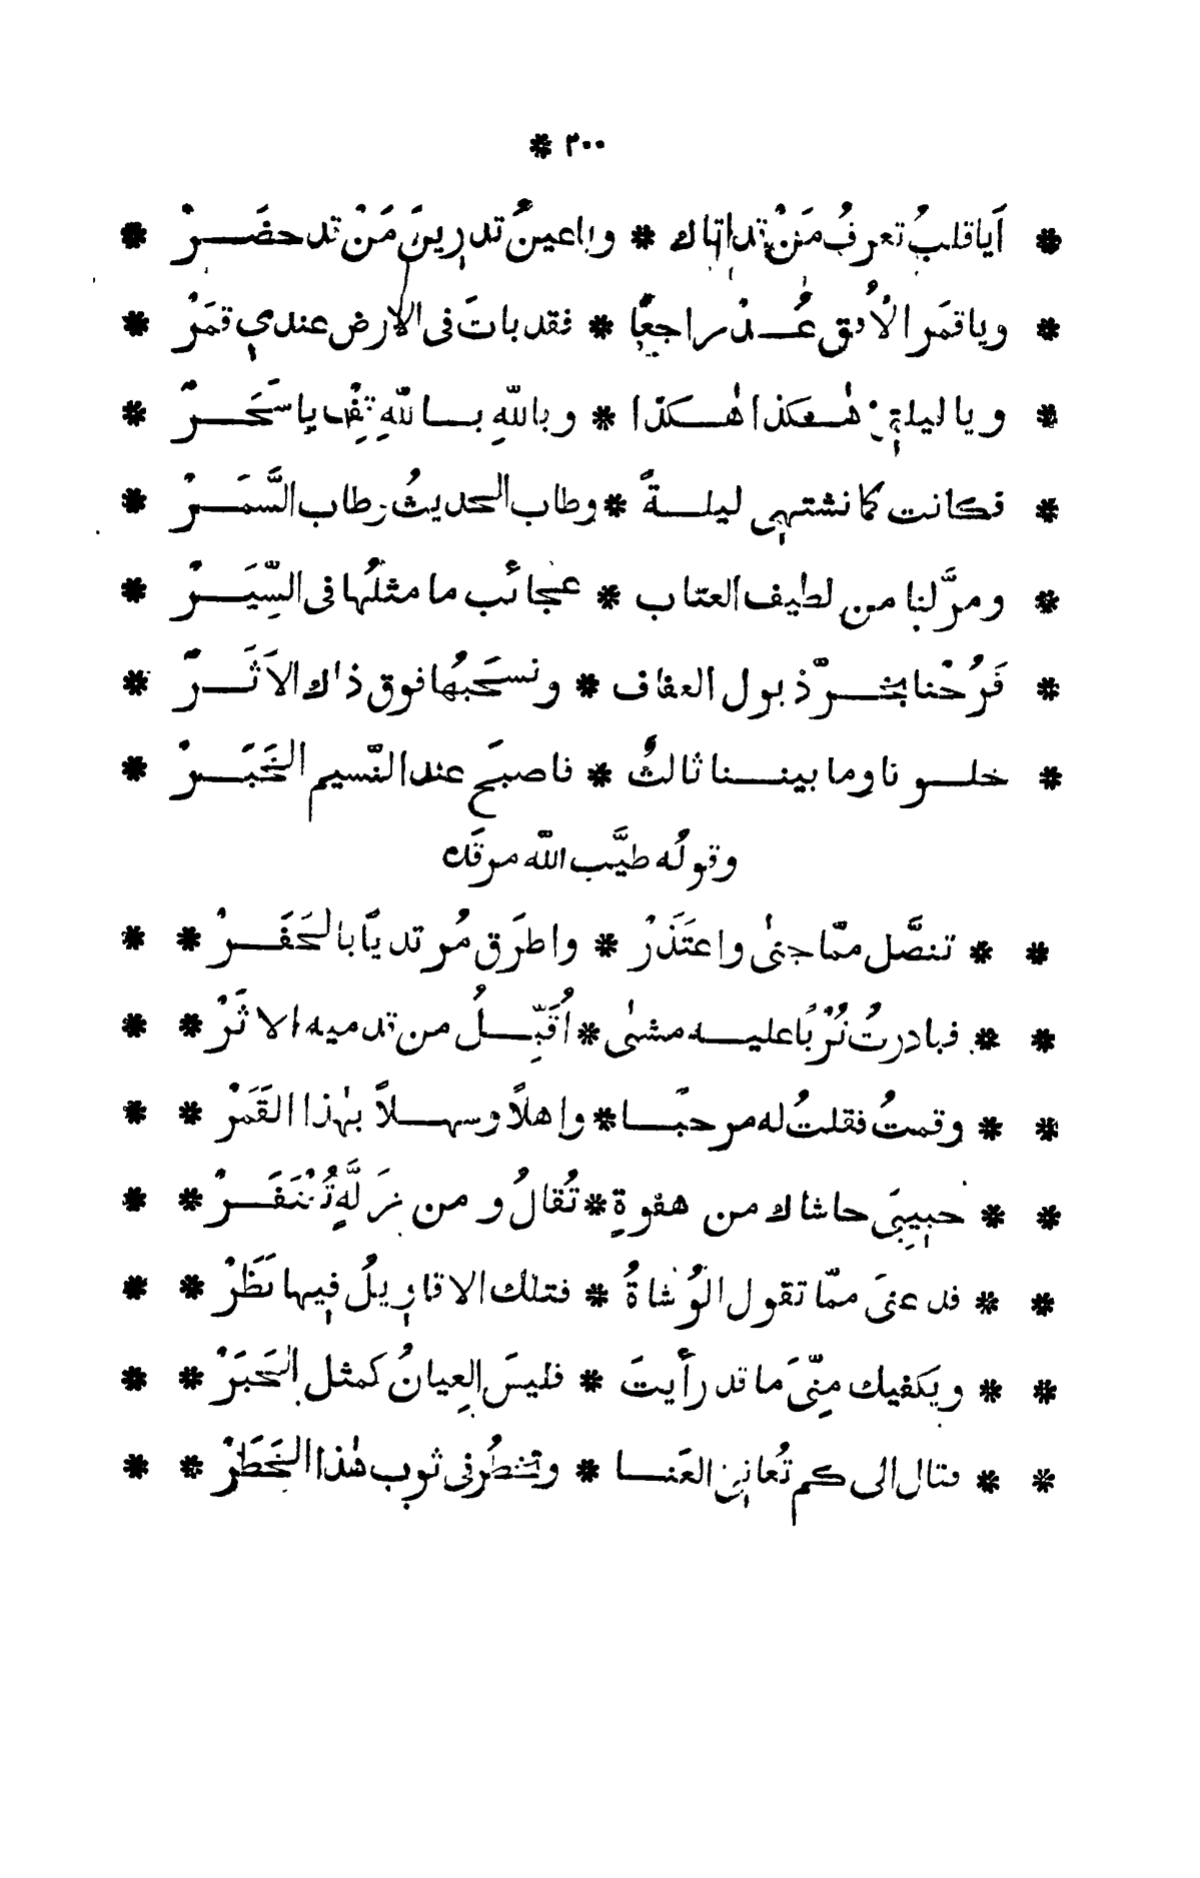 ٢٠٠ *
* أَيا قلبُ تعرفُ مَنْ قد اتاك * وياعينُ تدرينَ مَنْ قد حضَرْ *
* ويا قمَر الأُفق عُدْ راجعًا * فقد باتَ فى الارض عندي قمَرْ *
* ويا ليلتي هٰكذا هٰكذا * وباللّهِ باللّهِ قِفْ يا سَحَرْ *
* فكانت كما نشتهي ليلةً * وطاب الحديثُ وطاب السَّمَرْ *
* ومرَّ لنا من لطيف العتاب * عجائب ما مثلُها فى السِّيَرْ *
* فَرُحْنا بخرّ ذيول العفاف * ونسحَبُها فوق ذاك الاَثَرْ *
* خلونا وما بيننا ثالثٌ * فاصبحَ عند النّسيم الخَبَرْ *
وقولُه طيَّب اللّه مرقَده
* * تنصَّل ممّا جنىٰ واعتَذَرْ * واطرَق مُرتديًا بالخَفَرْ * *
* * فبادرتُ تُرْبًا عليه مشىٰ * أُقَبِّلُ من قدميه الاثَرْ * *
* * وقمتُ فقلتُ له مرحبًا * واهلًا وسهلًا بهٰذا القَمَرْ * *
* * حبيبِىَ حاشاك من هفوةٍ * تُقالُ ومن زَلَّةٍ تُغْتَفَرْ * *
* * فدعنىَ ممّا تقول الوُشاةُ * فتلك الاقاويلُ فيها نَظَرْ * *
* * ويكفيك مِنّىَ ما قد رأيتَ * فليسَ العِيانُ كمثل الخَبَرْ * *
* * فقال الى كم تُعانِي العَنا * وتخطُر فى ثوب هٰذا الخَطَرْ * *